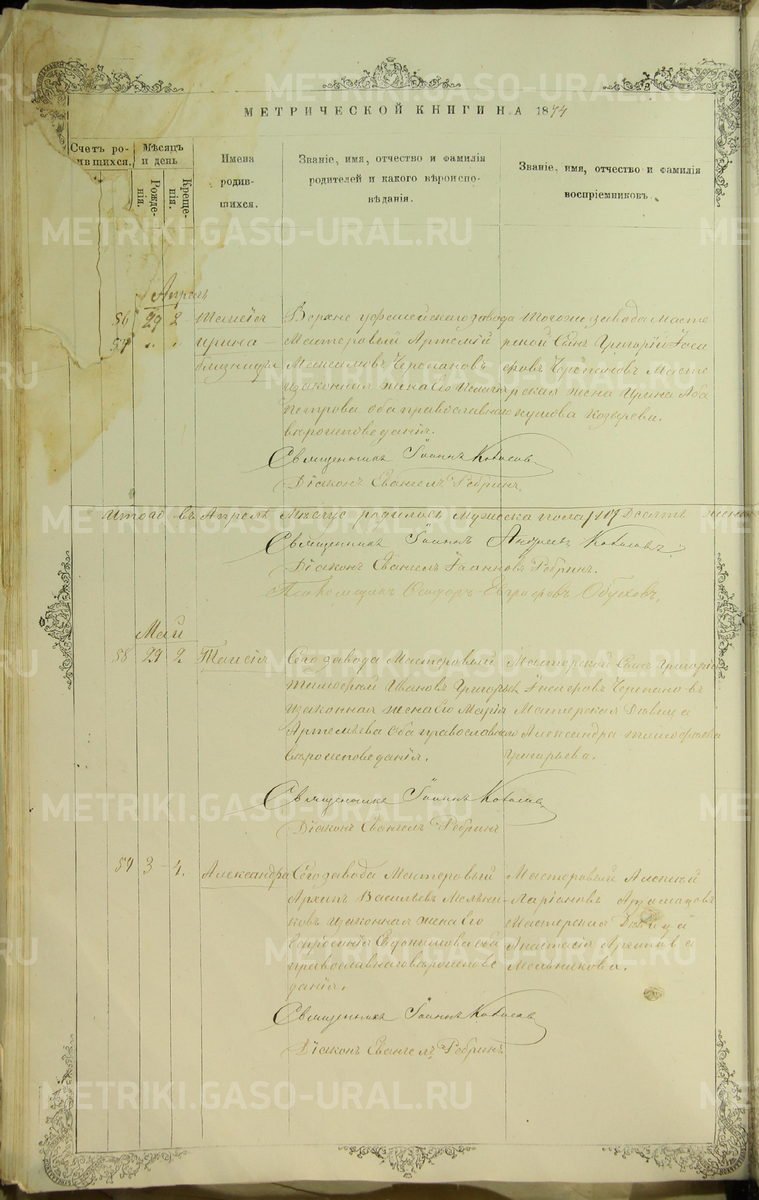 МЕТРИЧЕСКОЙ КНИГИ НА 1874
Счетъ ро-
ившихся.
Мѣсяцъ
и день
Рожде-
нія.
Креще-
нія.
Имена
родив-
шихся.
Званіе, имя, отчество и фамилія
родителей и какого вѣроиспо-
вѣданія.
Званіе, имя, отчество и фамилія
воспріемниковъ.
Апрель
56 29 2 Таисія
57 " " Ирина
близнецы
Верхне Уфалейскаго завода
Мастеровый Артемій
Максимовъ Черепановъ
и законная жена его
Петрова оба православнаго
вероисповеданія.
Тогоже завода Масте
рской Сынъ Григорій
Черепановъ Масте
рская жена Ирина
Козырева.
Священникъ Іоаннъ Ковасовъ
Діаконъ Евангелъ Рябринъ
Итого въ Апреле Месяце родилось Мужеска пола 17 Десять
Священникъ Іоаннъ Андреевъ Ковасовъ
Діаконъ Евангелъ Іоанновъ Рябринъ.
Псаломщикъ Обуховъ.
Май
58 29 2 Таисія
Сего завода Мастеровый
Тимофей Ивановъ Григорьевъ
и законная жена его Марія
Артемьева оба православнаго
вероисповеданія.
Мастерской Сынъ Григорій
Черепановъ
Мастерская Девица
Александра Тимофеева
Григорьева.
Священникъ Іоаннъ Ковасовъ
Діаконъ Евангелъ Рябринъ
59 3 4. Александра
Сего завода Мастеровый
Архипъ Васильевъ Мельни
ковъ и законная жена его
Евдокимова оба
православнаго вероиспове
данія.
Мастеровый Алексей
Ларіоновъ
Мастерская Девица
Анастасія Архипова
Мельникова.
Священникъ Іоаннъ Ковасовъ
Діаконъ Евангелъ Рябринъ
METRIKI.GASO-URAL.RU